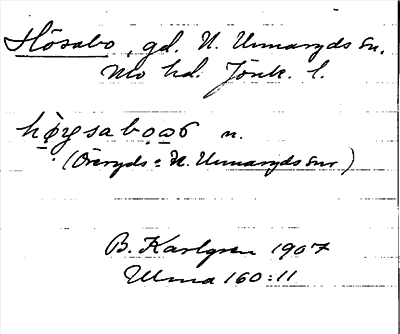 Hösabo, gd. N. Unnaryds sn,
Mo hd. Jönk. l.
høysaboo n.
(Öreryds = N. Unnaryds snr)
B. Karlgren 1907
Ulma 160:11